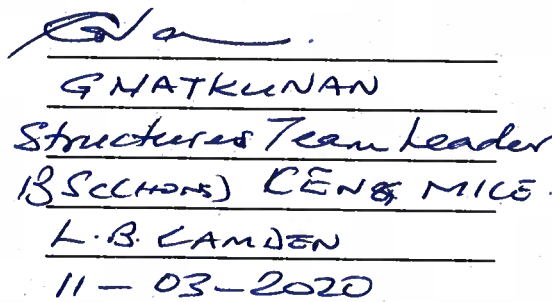 G NATKUNAN
Structures Team Leader
BSc(HONS) CENG MICE.
L.B. CAMDEN
11-03-2020